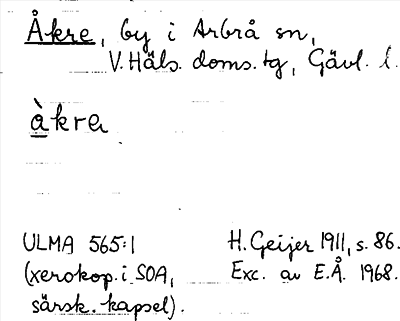 Åkre, by i Arbrå sn,
V. Häls. doms. tg, Gävl. l.
àkra
ULMA 565:1
(xerokop. i SOA,
särsk. kapsel).
H. Geijer 1911, s. 86.
Exc. av E.Å. 1968.